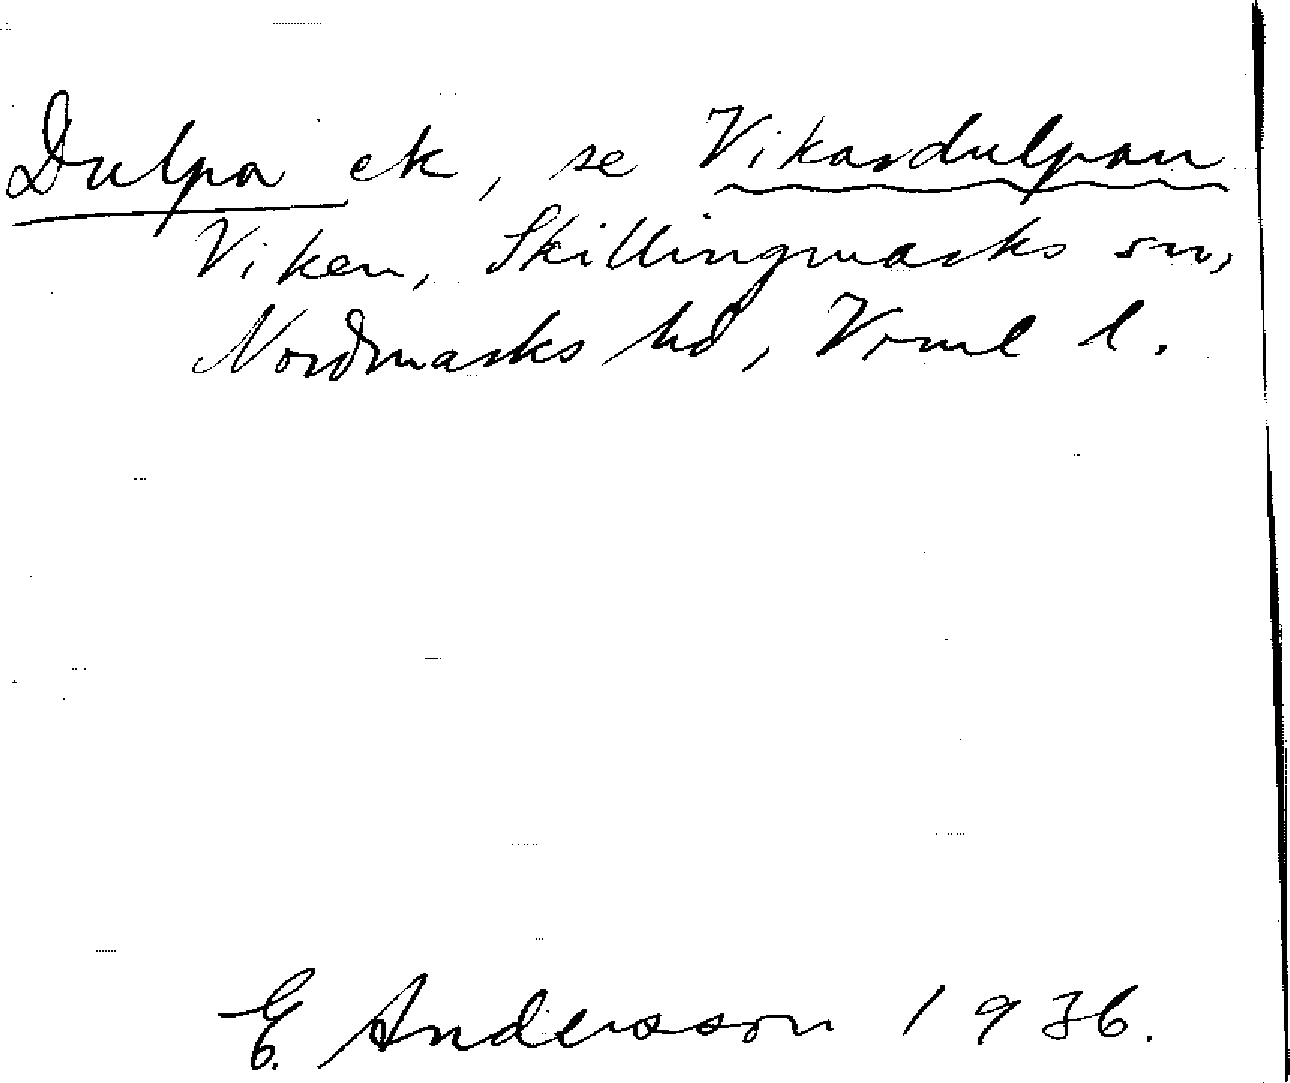 Dulpa ek, se Vikardulpan
Viken, Skillingmarks sn,
Nordmarks hd, Vrml l.
E. Andersson 1936.